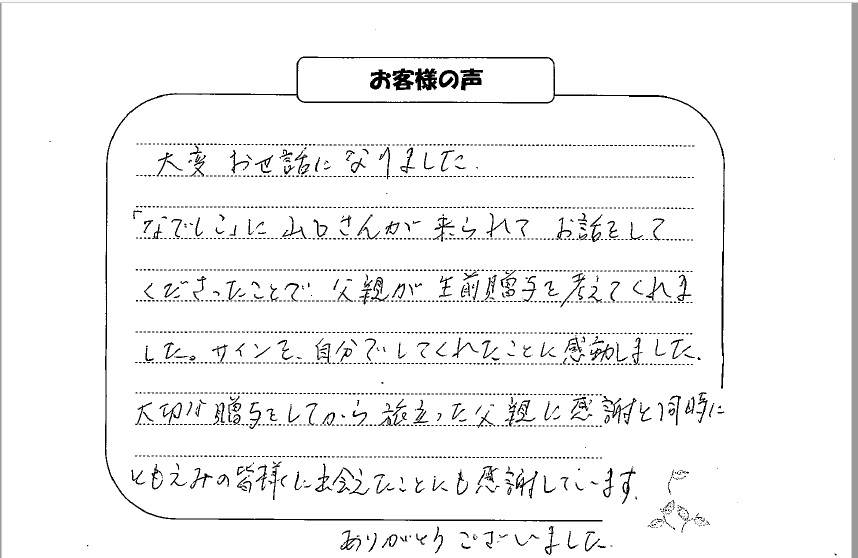 お客様の声
大変 お世話になりました.
「なでしこ」に 山口さんが 来られて お話をして
くださったことで 父親が 生前贈与を考えてくれま
した。サインを、自分でしてくれたことに感動しました.
大切な贈与をしてから 旅立った父親に感謝と同時に
ともえみの皆様に出会えたことにも感謝しています.
ありがとう ございました.